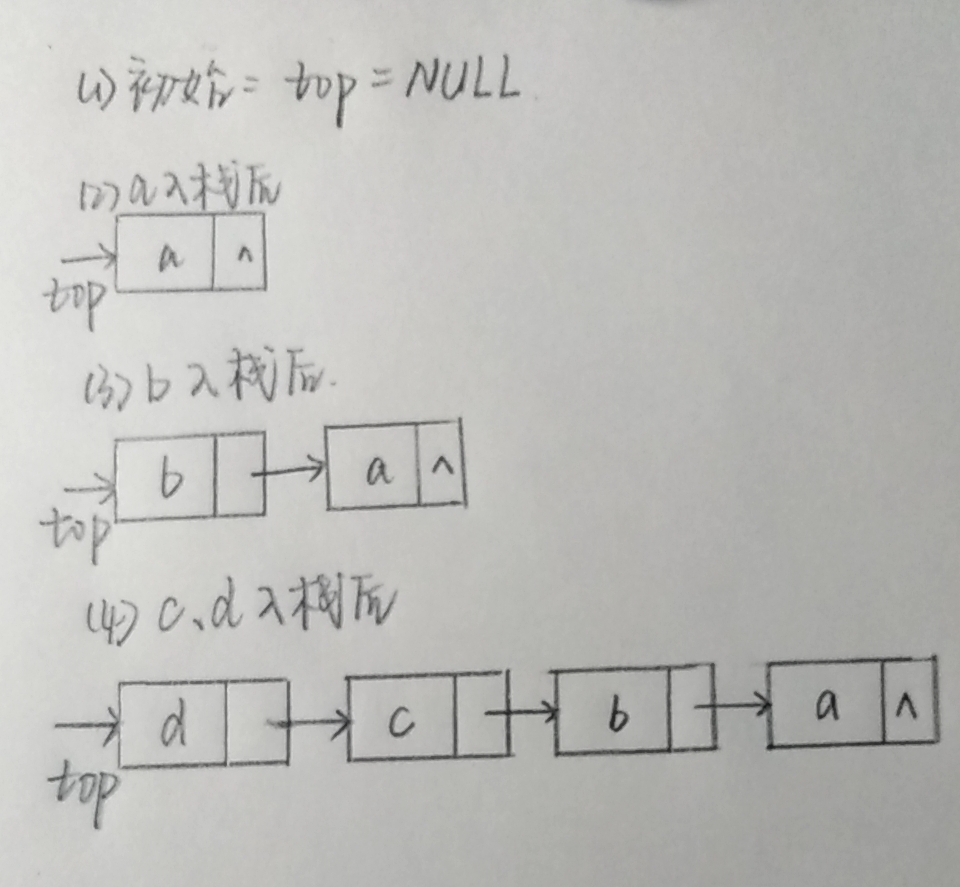 (1) 初始: top = NULL
(2) a入栈后
a ∧
top
(3) b入栈后.
b a ∧
top
(4) c、d入栈后
d c b a ∧
top